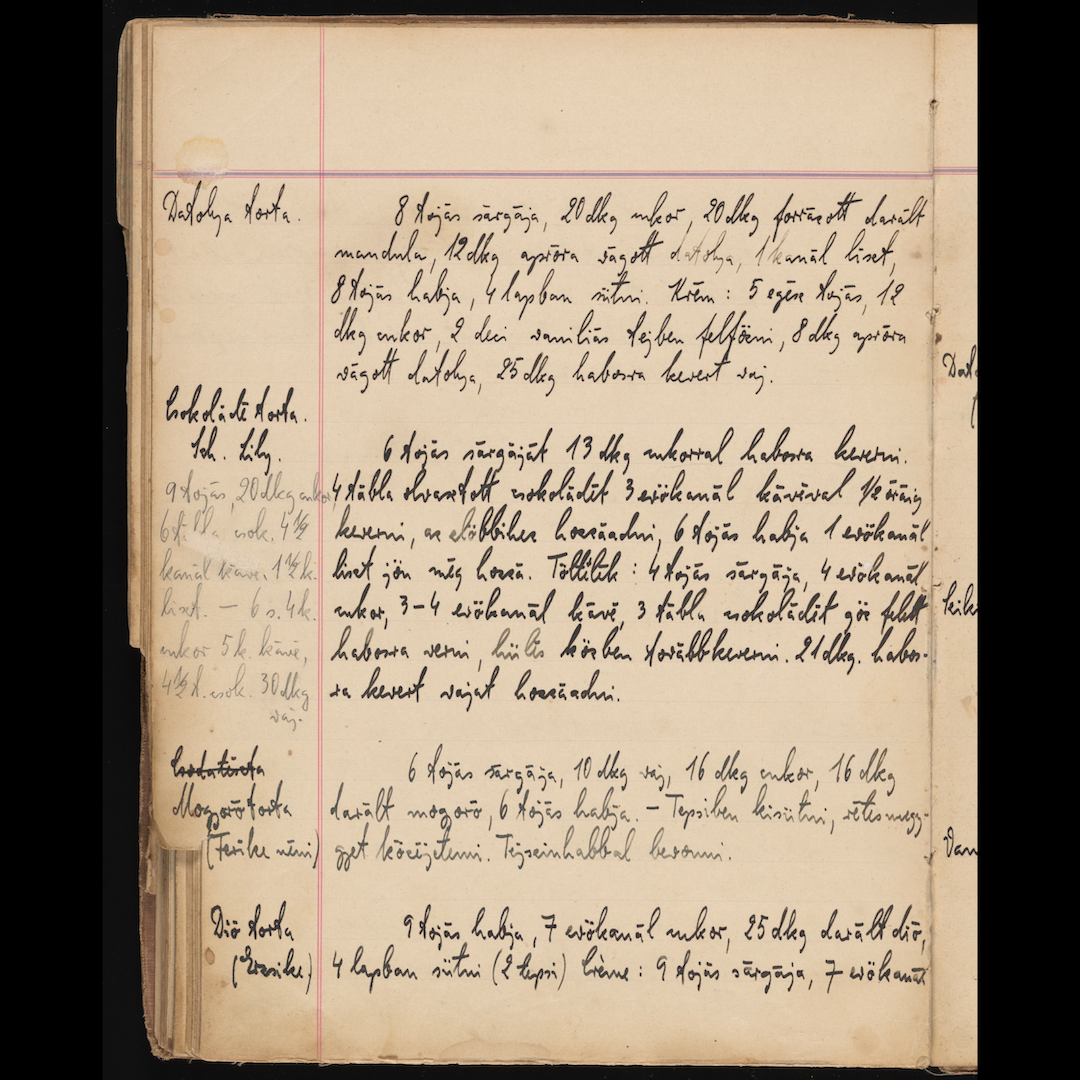 Datolya torta.
8 tojás sárgája, 20 dkg cukor, 20 dkg forrázott darált
mandula, 12 dkg apróra vágott datolya, 1 kanál liszt,
8 tojás habja, 4 lapban sütni. Krém: 5 egész tojás, 12
dkg cukor, 2 deci vaniliás tejben felfőzni, 8 dkg apróra
vágott datolya, 25 dkg habosra kevert vaj.
Csokoládé torta.
Sch. Lily.
6 tojás sárgáját 13 dkg cukorral habosra keverni.
4 tábla olvasztott csokoládét 3 evőkanál kávéval 1/2 óráig
keverni, az előbbihez hozzáadni, 6 tojás habja 1 evőkanál
liszt jön még hozzá. Töltelék: 4 tojás sárgája, 4 evőkanál
cukor, 3-4 evőkanál kávé, 3 tábla csokoládét gőz felett
habosra verni, hülés közben továbbkeverni. 21 dkg. habos-
ra kevert vajat hozzáadni.
9 tojás, 20 dkg cukor
6 tábla csok. 4 1/2
kanál kávé. 1 1/2 k.
liszt. — 6 s. 4 k.
cukor 5 k. kávé,
4 1/2 t. csok. 30 dkg
vaj.
Csodatészta
Mogyorótorta
(Terike néni)
6 tojás sárgája, 10 dkg vaj, 16 dkg cukor, 16 dkg
darált mogyoró, 6 tojás habja. — Tepsiben kisütni, rétesmegy-
gyet közéjetenni. Tejszinhabbal bevonni.
Dió torta
(Erzsike)
9 tojás habja, 7 evőkanál cukor, 25 dkg darált dió,
4 lapban sütni (2 tepsi) Crème: 9 tojás sárgája, 7 evőkanál
Dat
Van